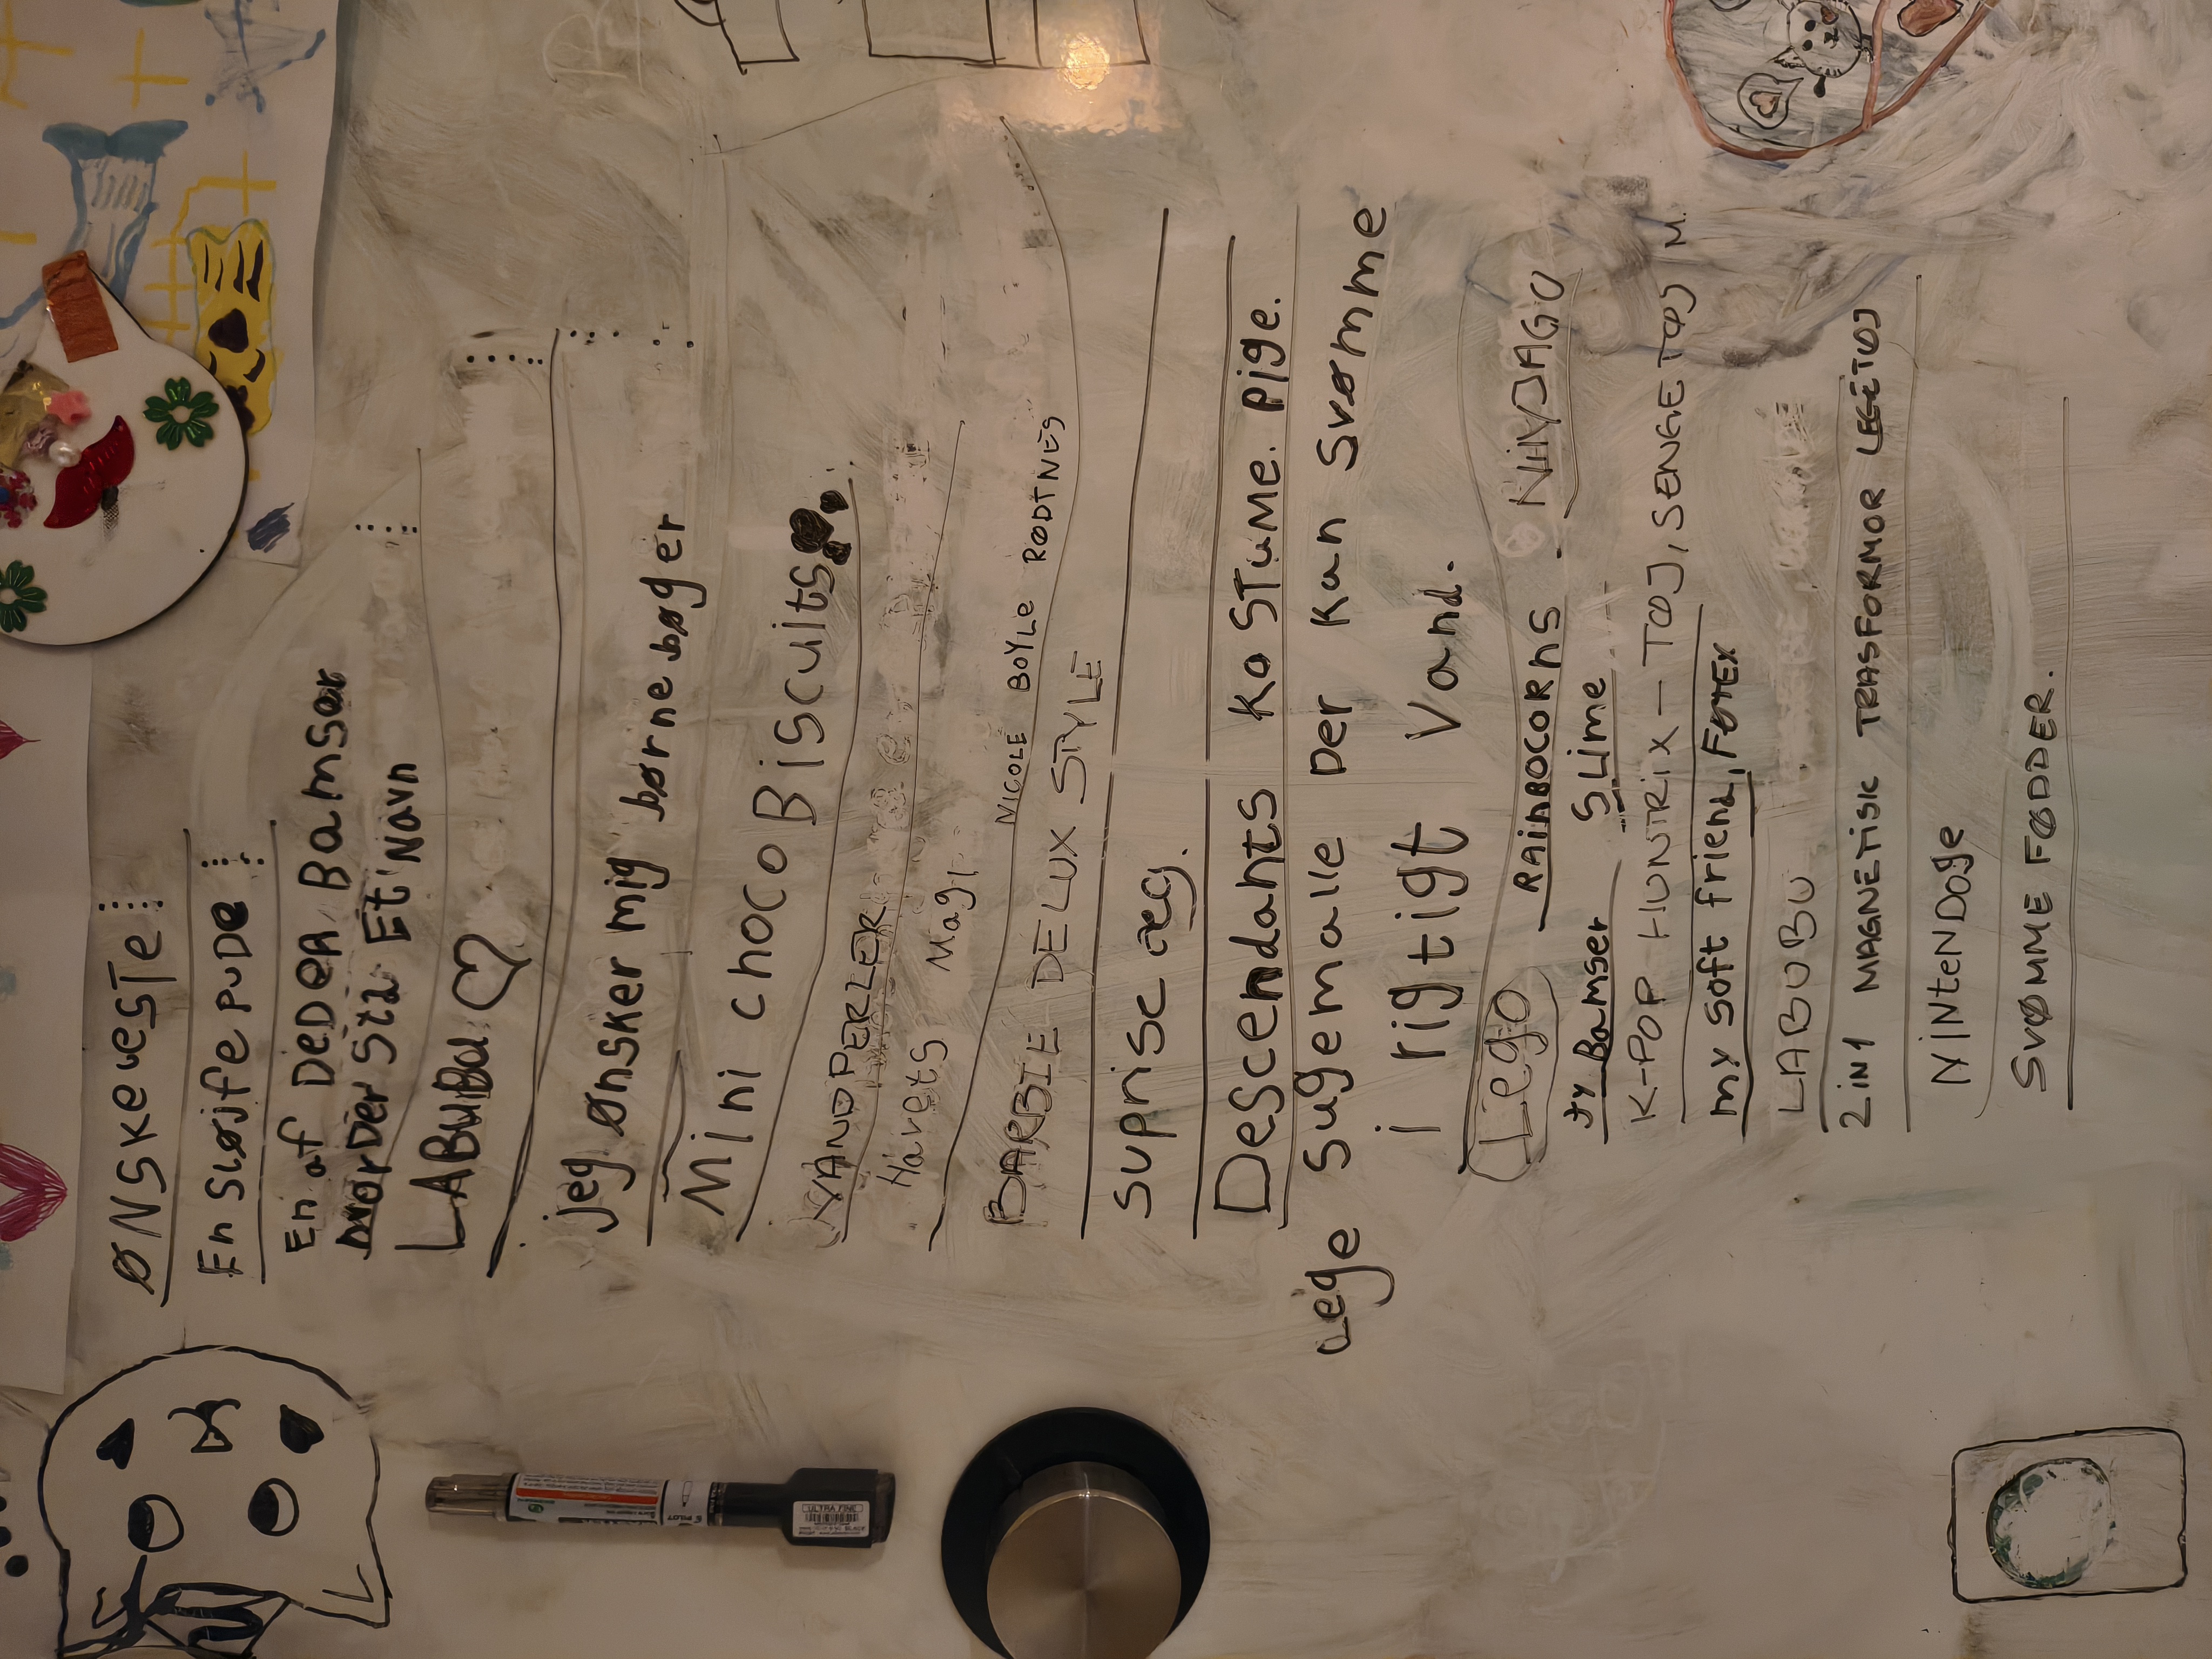 ØNSKELISTE
En SLØJFE PUDE
En af DeDER Bamser
DerSTår Et Navn
LABuBu
jeg ønsker mig børnebøger
Mini choco Biscuits
VANDPERLER
Harets Magi
NICOLE BOYLE RØDTNES
BARBIE DELUX STYLE
Suprise æg.
Descendants KoSTuMe. Pige.
Lege Sugemalle Der Kan Svømme
i rigtigt Vand.
Lego RAINBOCORNS . NINJAGO
ty Bamser SLime
K-POP HUNTRIX – TØJ, SENGETØJ M.
my soft friend, FØTEX
LABUBU
2 in 1 MAGNETISK TRASFORMOR LEGETØJ
NINtENDOge
SVØMME FØDDER.
PILOT
ULTRA FINE